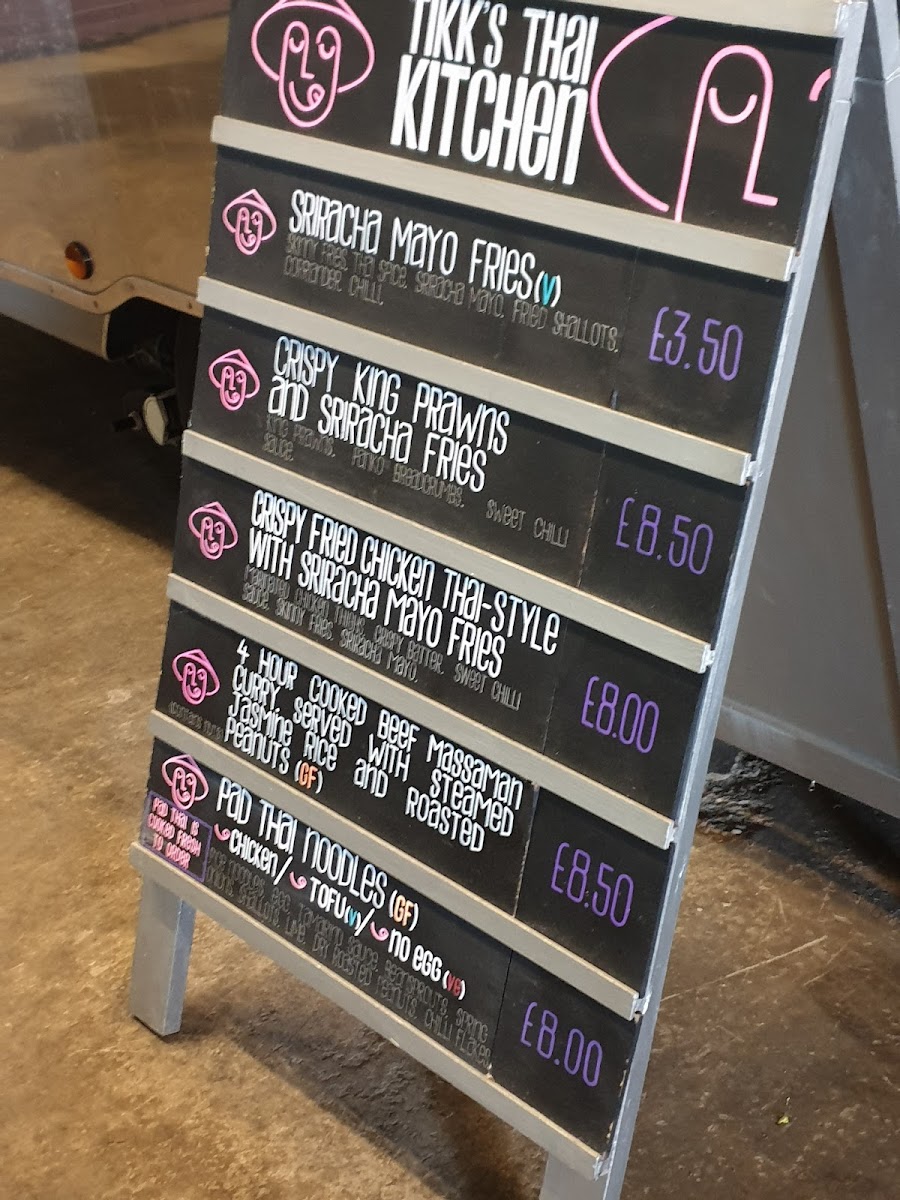 Tikk's Thai
Kitchen
Sriracha Mayo Fries (V)
Skinny fries, Thai spice, sriracha mayo, fried shallots,
coriander, chilli.
£3.50
Crispy King Prawns
and Sriracha Fries
King prawns, panko breadcrumbs, sweet chilli
sauce.
£8.50
Crispy Fried Chicken Thai-Style
with Sriracha Mayo Fries
Marinated chicken thighs, crispy batter, sweet chilli
sauce, skinny fries, sriracha mayo.
£8.00
4 Hour Cooked Beef Massaman
Curry, served with steamed
Jasmine Rice and Roasted
Peanuts (GF)
(contains nuts)
£8.50
Pad Thai Noodles (GF)
Chicken/ Tofu (V)/ No Egg (VE)
Rice noodles, egg, tamarind sauce, beansprouts, spring
onions, shallots, lime, dry roasted peanuts, chilli flakes
Pad Thai is
cooked fresh
to order
£8.00